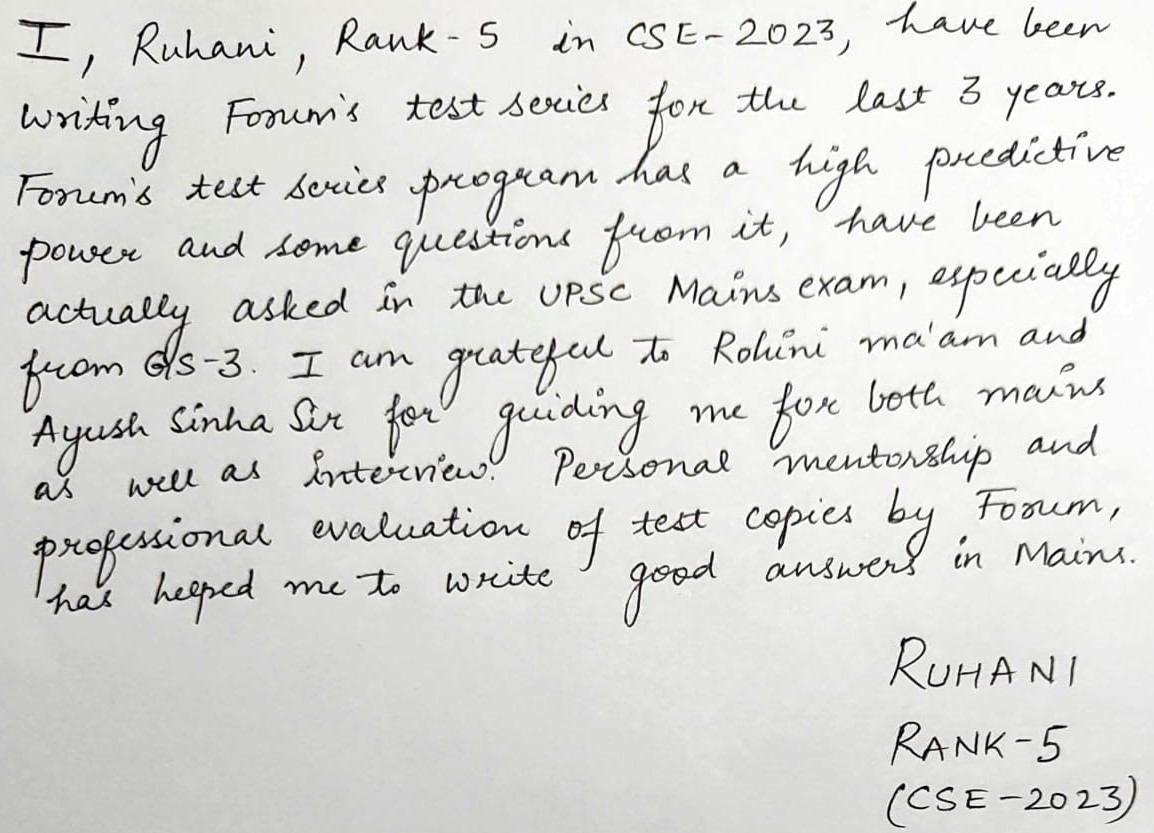 I, Ruhani, Rank-5 in CSE-2023, have been
writing Forum's test series for the last 3 years.
Forum's test series program has a high predictive
power and some questions from it, have been
actually asked in the UPSC Mains exam, especially
from GS-3. I am grateful to Rohini ma'am and
Ayush Sinha Sir for guiding me for both mains
as well as interview. Personal mentorship and
professional evaluation of test copies by Forum,
has helped me to write good answers in Mains.
RUHANI
RANK-5
(CSE-2023)